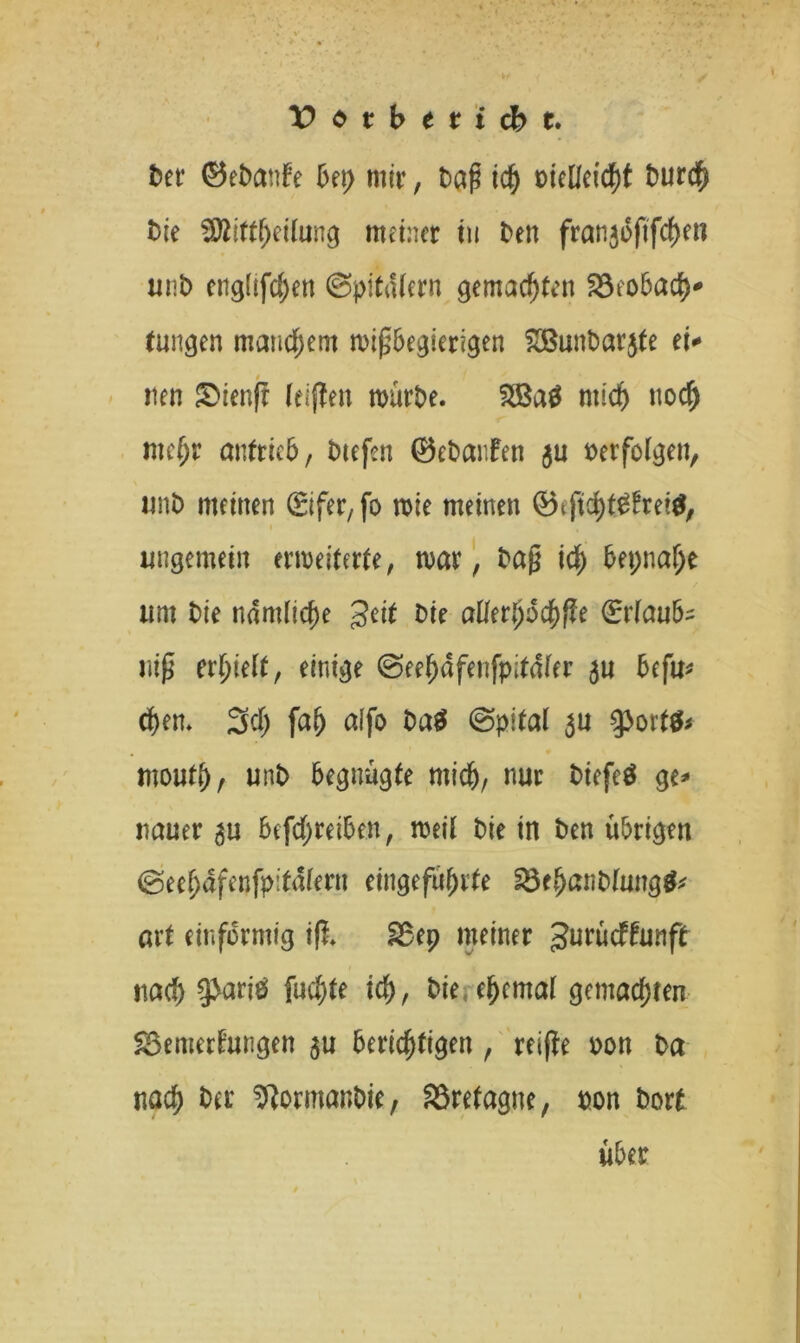 Vorbericht.
der Gedanke bey mir, daß ich vielleicht durch
die Mittheilung meiner in den französischen
und englischen Spitälern gemachten Beobach-
tungen manchem wißbegierigen Wundarzte ei-
nen Dienst leisten würde. Was mich noch
mehr antrieb, diesen Gedanken zu verfolgen,
und meinen Eifer, so wie meinen Gesichtskreis,
ungemein erweiterte, war, daß ich beynahe
um die nämliche Zeit die allerhöchste Erlaub-
niß erhielt, einige Seehäfenspitäler zu besu-
chen. Ich sah also das Spital zu Ports-
mouth, und begnügte mich, nur dieses ge-
nauer zu beschreiben, weil die in den übrigen
Seehäfenspitälern eingeführte Behandlungs-
art einförmig ist. Bey meiner Zurückkunft
nach Paris suchte ich, die ehemal gemachten
Bemerkungen zu berichtigen, reiste von da
nach der Normandie, Bretagne, von dort
über